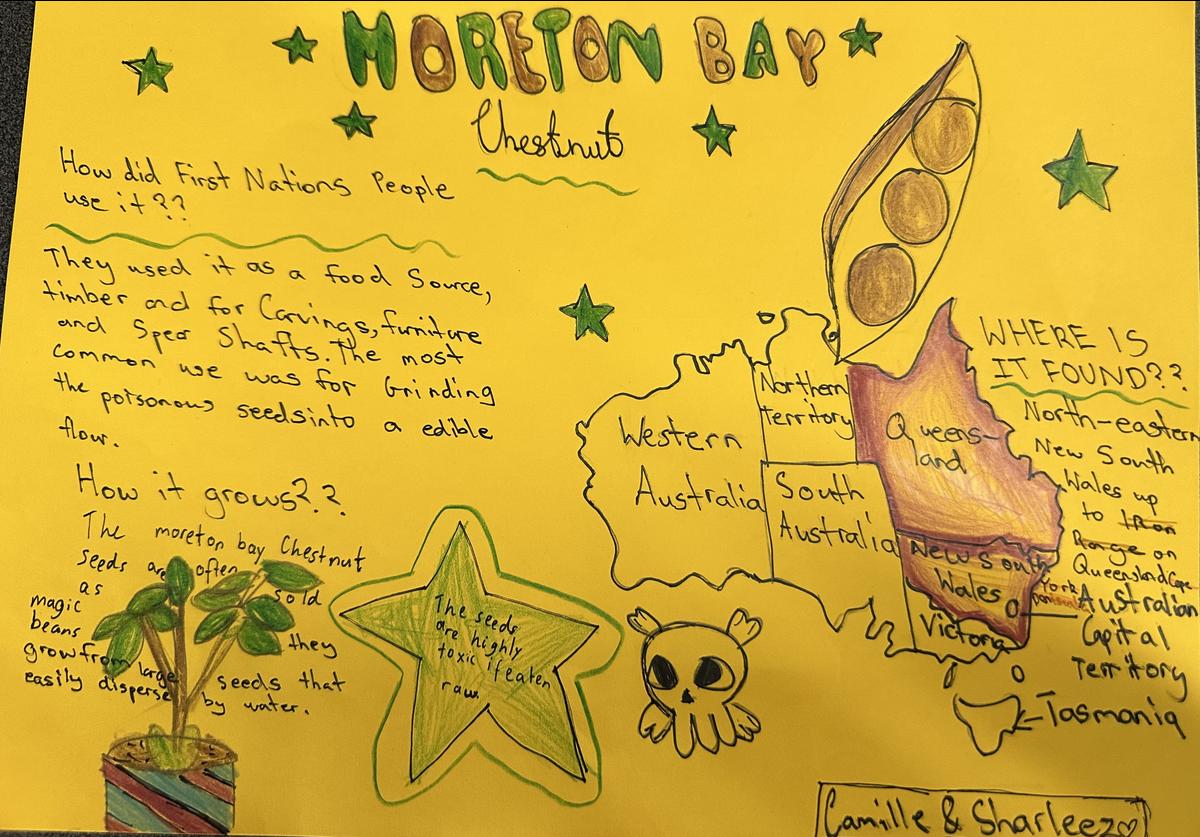 MORETON BAY
Chestnut
How did First Nations People
use it??
They used it as a food Source,
timber and for Carvings, furniture
and Spear Shafts. The most
common use was for Grinding
the poisonous seedsinto a edible
flour.
How it grows??
The moreton bay Chestnut
seeds are often
sold
as
magic
beans
they
grow from large seeds that
easily disperse by water.
The seeds
are highly
toxic ifeaten
raw.
WHERE IS
IT FOUND??
North-eastern
New South
Wales up
to Iron
Range on
Queensland Cape
York
Australian
Capital
Territory
Tasmania
Western
Australia
Northern
territory
South
Australia
Queens-
land
New South
Wales
Victoria
Camille & Sharleez